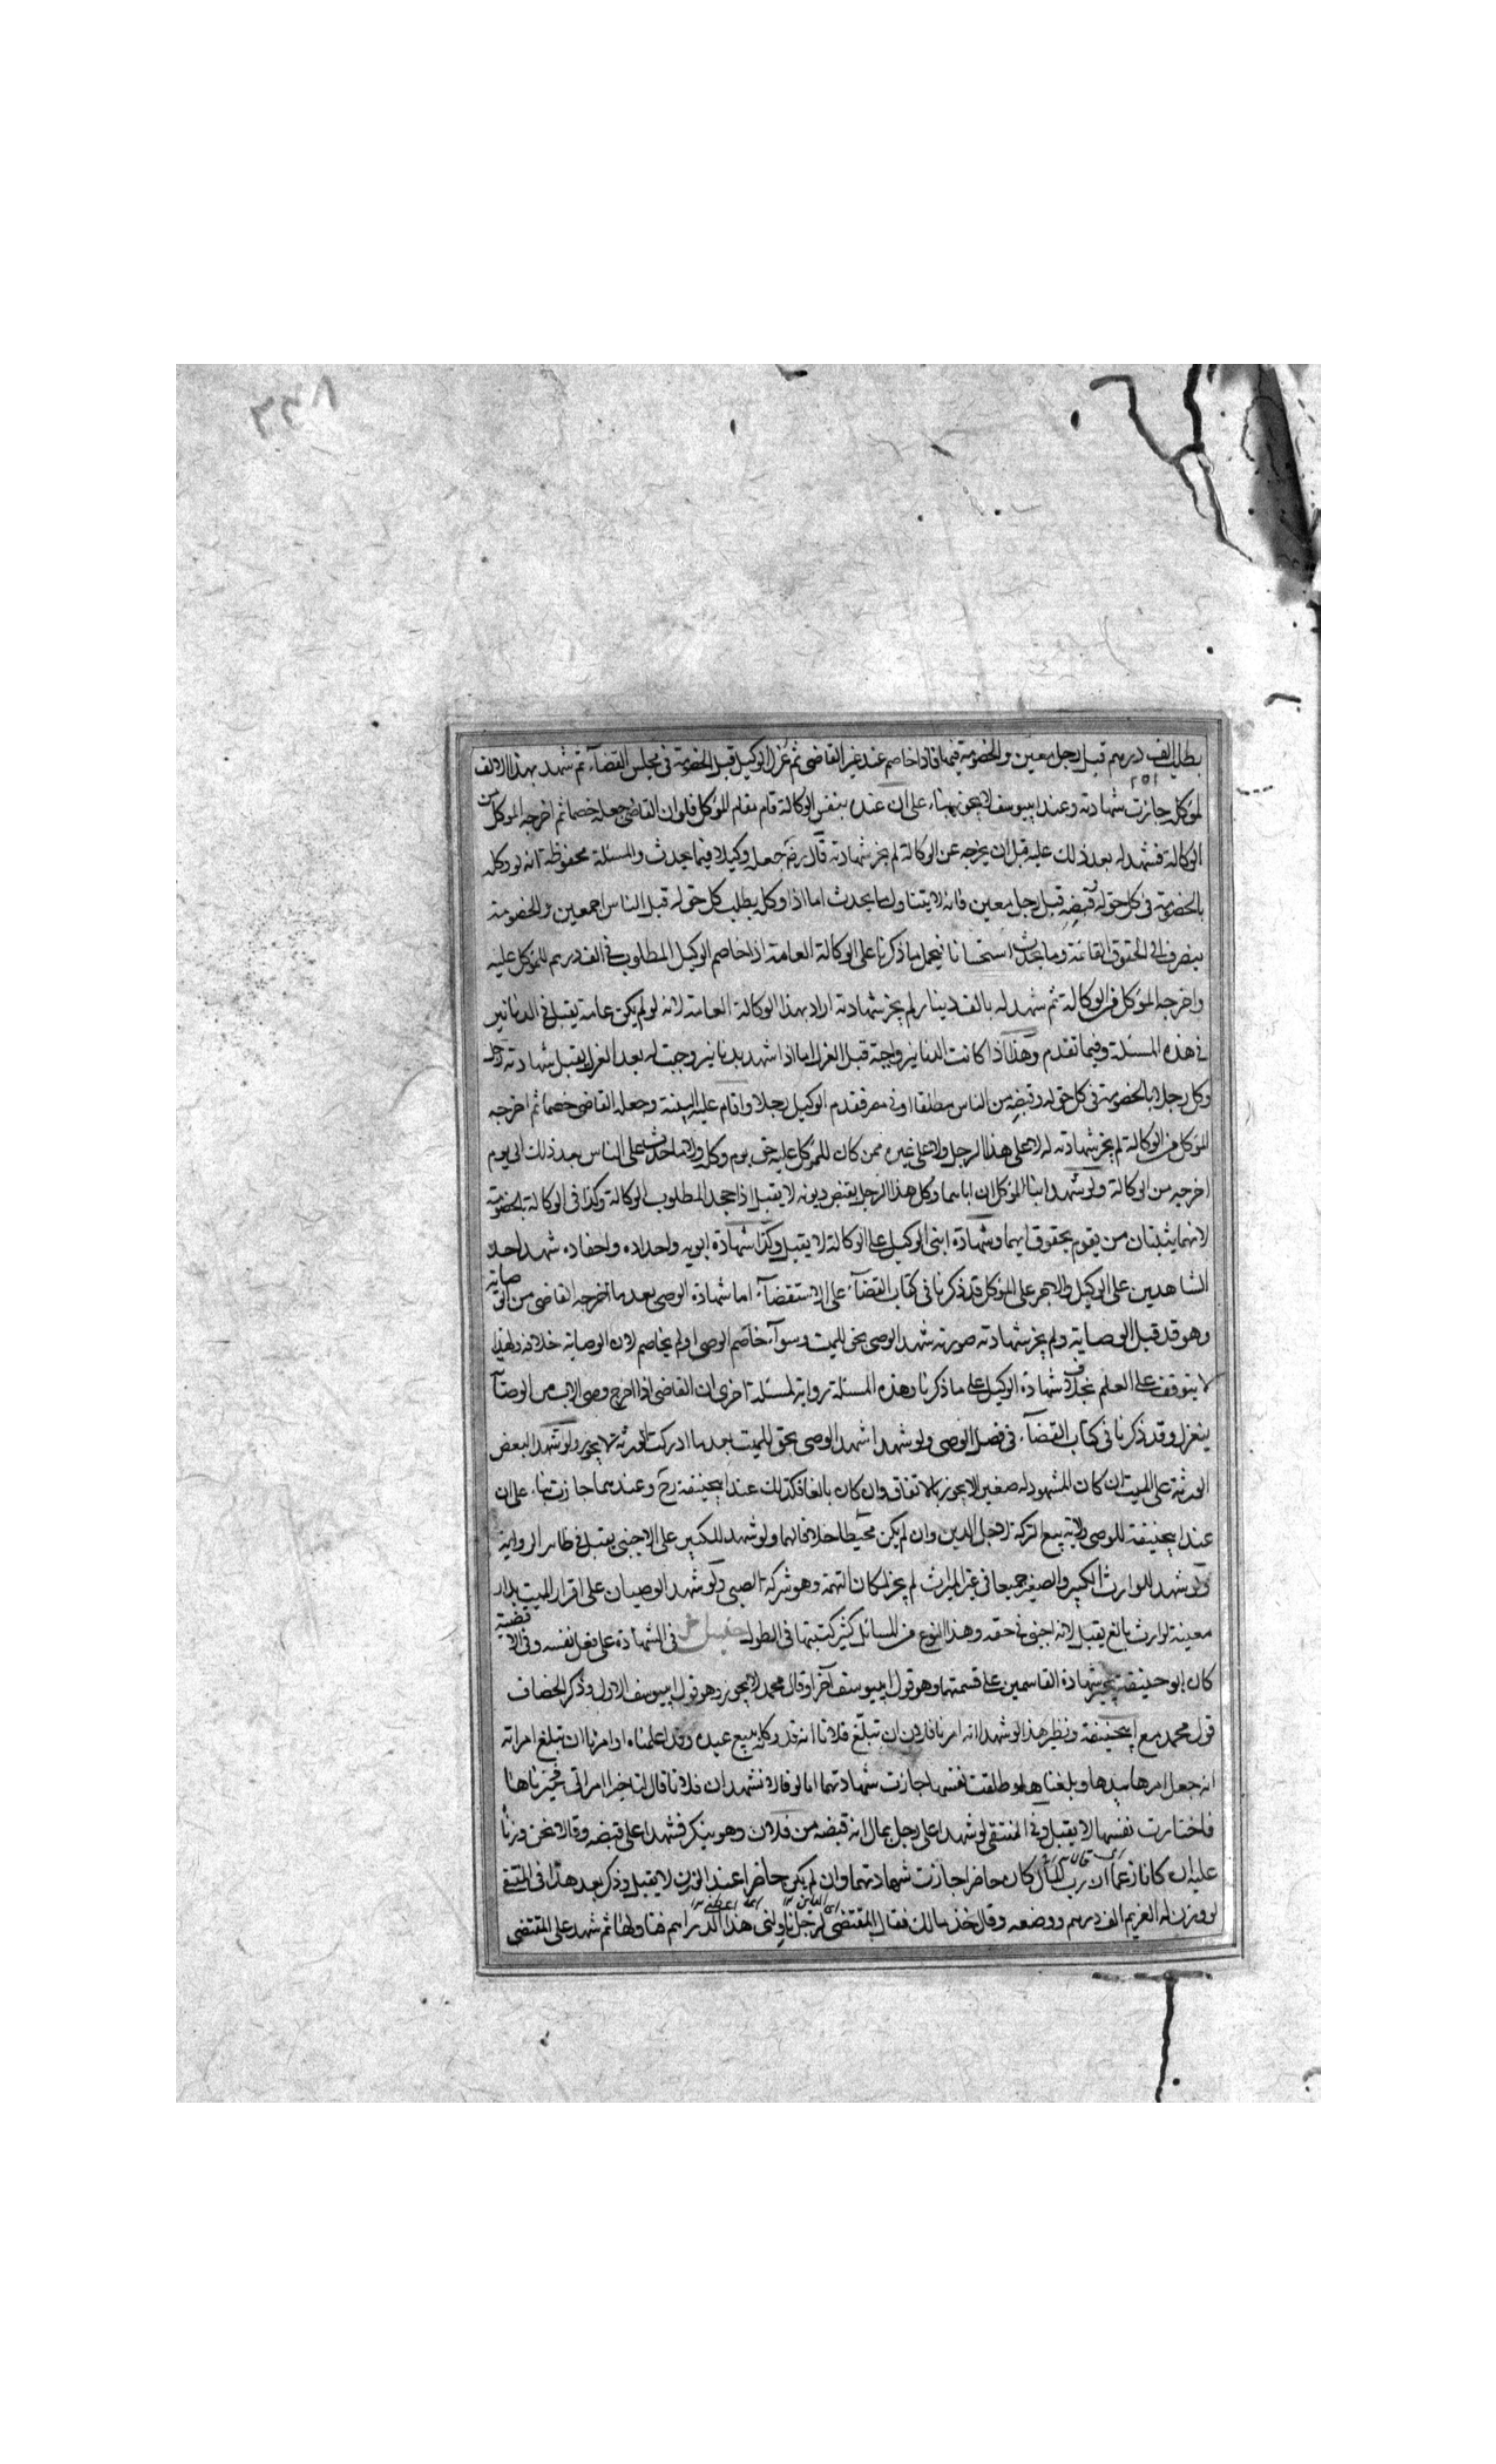 بطلب الف درهم قبل رجل معين والخصومة فيها فاذا خاصم عند غير القاضي ثم عزل الوكيل قبل الخصومة في مجلس القضاء ثم شهد بهذا الالف
لموكله جازت شهادته وعند ابيوسف لا يجوز بناء على ان عنده بنفس الوكالة قام مقام الموكل فلو ان القاضي جعله خصما ثم اخرجه الموكل من
الوكالة فشهد له بعد ذلك عليه قبل ان يخرجه عن الوكالة لم يجز شهادته قال رضي جعله وكيلا فيما يحدث والمسئلة محفوظة انه لو وكله
بالخصومة في كل حق له وقبضه قبل رجل معين فانه لا يتناول ما يحدث اما اذا وكل بطلب كل حق له قبل الناس اجمعين والخصومة
ينصرف الى الحقوق القائمة وما يحدث استحسانا فيحمل ما ذكرنا على الوكالة العامة اذا خاصم الوكيل المطلوب في الف درهم للموكل عليه
واخرجه الموكل من الوكالة ثم شهد له بالف دينار لم يجز شهادته اراد بهذا الوكالة العامة لانه لو لم يكن عامة يقبل في الدنانير
في هذه المسئلة وفيما تقدم وهذا اذا كانت الدنانير واجبة قبل العزل اما اذا شهد بدنانير وجبت له بعد العزل يقبل شهادته رجل
وكل رجلا بالخصومة في كل حق له وقبضه من الناس مطلقا او في مصر فقدم الوكيل رجلا واقام عليه البينة وجعله القاضي خصما ثم اخرجه
الموكل من الوكالة لم يجز شهادته له لا على هذا الرجل ولا على غيره ممن كان للموكل عليه حق يوم وكله ولا بما حدث على الناس بعد ذلك الى يوم
اخرجه من الوكالة ولو شهد ابنا الموكل ان اباهما وكل هذا الرجل بقبض ديونه لا يقبل اذا جحد المطلوب الوكالة وكذا في الوكالة بالخصومة
لانهما يثبتان من يقوم بحقوق ابيهما وشهادة ابني الوكيل على الوكالة لا يقبل وكذا شهادة ابويه واجداده واحفاده شهد احد
الشاهدين على الوكيل والاخر على الموكل قد ذكرنا في كتاب القضاء على الاستقضاء اما شهادة الوصي بعد ما اخرجه القاضي من الوصاية
وهو قد قبل الوصاية ولم يجز شهادته صورته شهد الوصي بحق للميت وسواء خاصم الوصي او لم يخاصم لان الوصاية خلافة ولهذا
لا يتوقف على العلم بخلاف شهادة الوكيل على ما ذكرنا وهذه المسئلة رواية لمسئلة اخرى ان القاضي اذا اخرج وصي الاب من الوصاية
ينعزل وقد ذكرنا في كتاب القضاء في فصل الوصي ولو شهدا شهد الوصي بحق للميت بعد ما ادركت الورثة لا يجوز ولو شهد البعض
الورثة على الميت ان كان المشهود له صغيرا لا يجوز بالاتفاق وان كان بالغا فكذلك عند ابيحنيفة رح وعندهما جازت بناء على ان
عند ابيحنيفة للوصي ولاية بيع التركة لاجل الدين وان لم يكن محيطا خلافا لهما ولو شهد للكبير على الاجنبي يقبل في ظاهر الرواية
ولو شهد للوارث الكبير والصغير جميعا في غير الميراث لم يجز لمكان التهمة وهو شركة الصبي ولو شهد الوصيان على اقرار الميت بدار
معينة لوارث بالغ يقبل لانه اجنبي في حقه وهذا النوع من المسائل كثير كتبتها في المطول في الشهادة على فعل نفسه وفي الاقضية
كان ابو حنيفة يجيز شهادة القاسمين على قسمتهما وهو قول ابيوسف آخرا وقال محمد لا يجوز وهو قول ابيوسف الاول وذكر الخصاف
قول محمد مع ابيحنيفة ونظير هذا لو شهدا انه امرنا فلان ان تبلغ فلانا انه قد وكله ببيع عبده وقد اعلمناه او امرنا ان تبلغ امراته
انه جعل امرها بيدها وبلغناها وطلقت نفسها جازت شهادتهما اما لو قالا نشهد ان فلانا قال لنا خيرا امراتي فخيرناها
فاختارت نفسها لا يقبل وفي المنتقى لو شهدا على رجل بمال انه قبضه من فلان وهو ينكر فشهدا على قبضه وقالا نحن وزنا
عليه ان كانا زعما ان رب المال كان حاضرا جازت شهادتهما وان لم يكن حاضرا عند الوزن لا يقبل وذكر بعد هذا في المنتقى
لو وزن له الغريم الف درهم ووضعه وقال خذ مالك فقال المقتضي لرجل ناولني هذا الدراهم فناوله ثم شهد على المقتضي